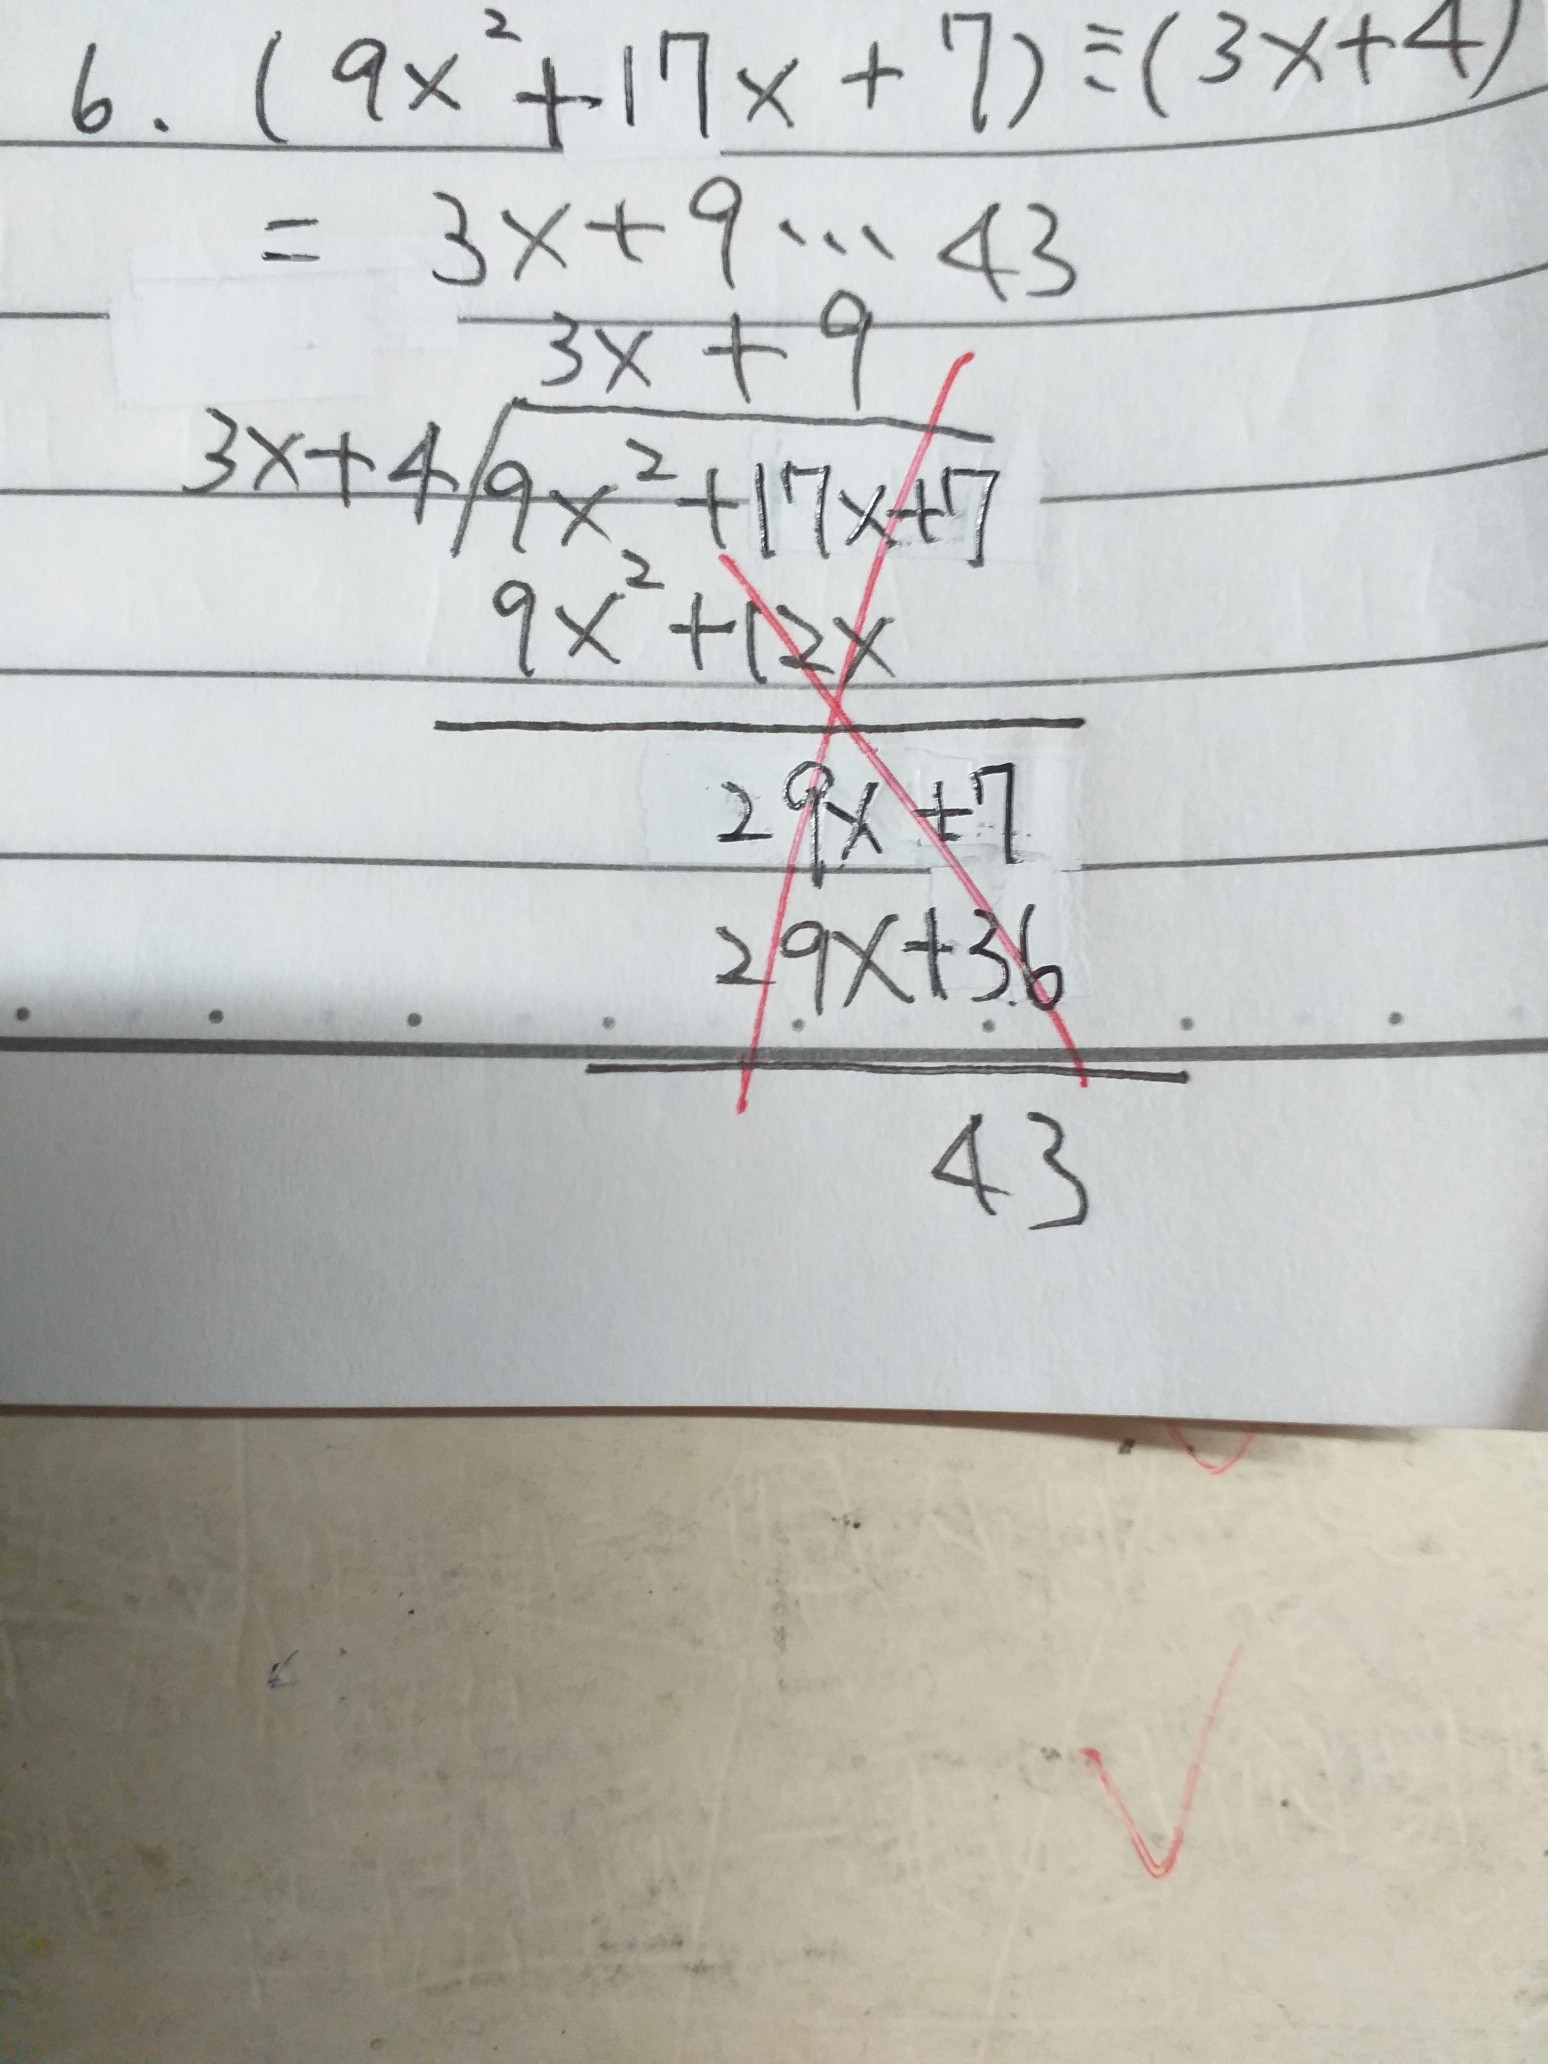 6. (9x²+17x+7)÷(3x+4)
= 3x+9…43
3x+9
3x+4 9x²+17x+7
9x²+12x
29x+7
29x+36
43